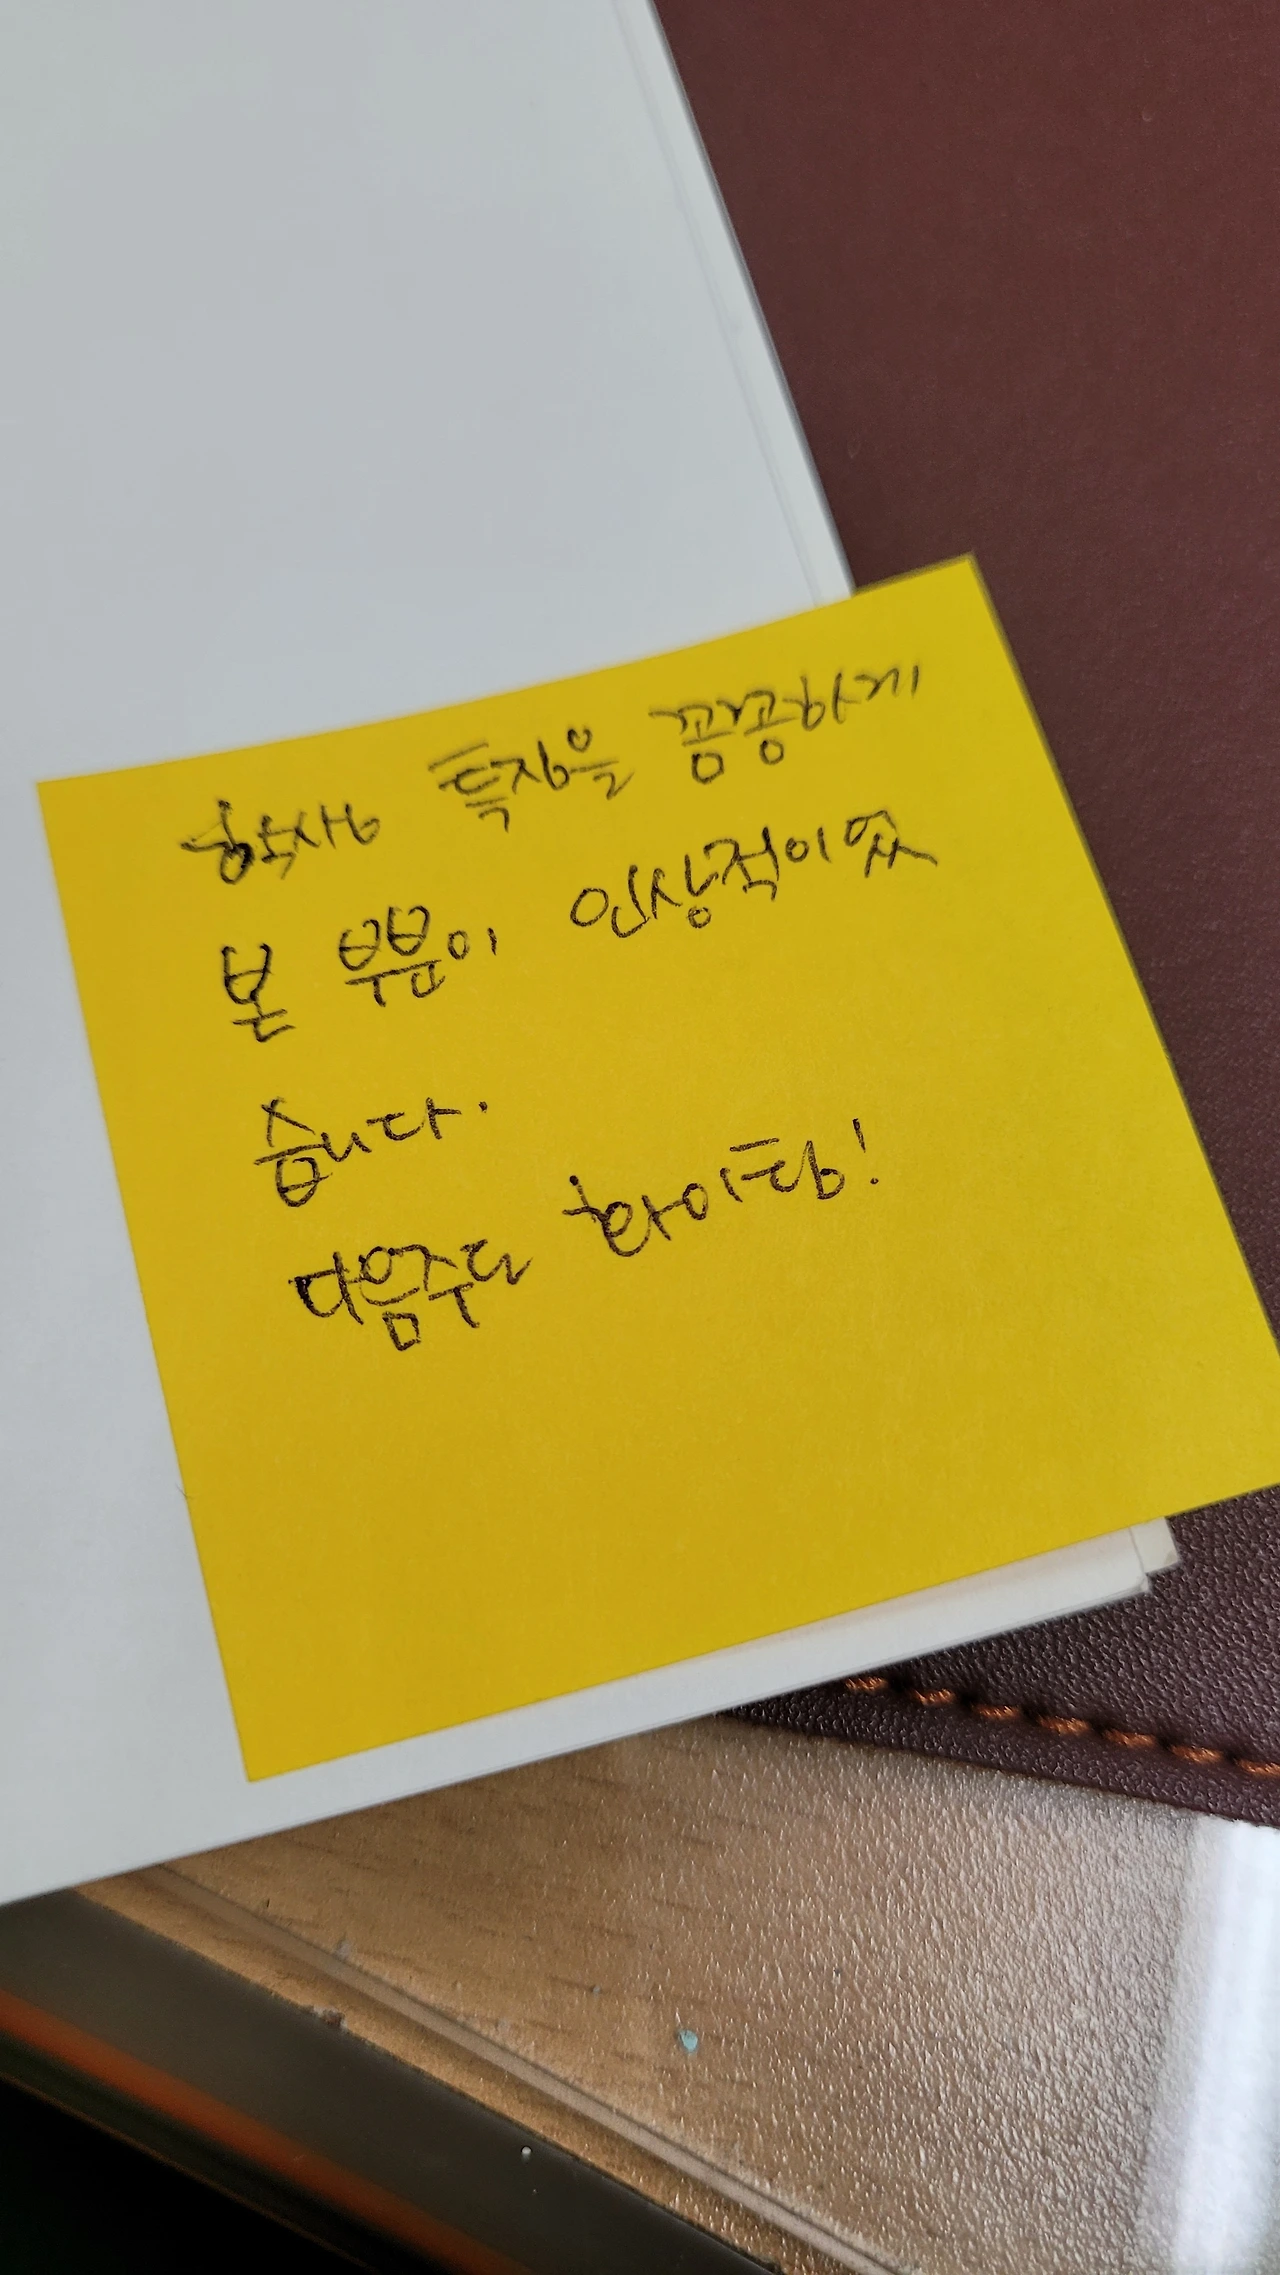 학생 특징을 꼼꼼하게
본 부분이 인상적이었
습니다.
다음주도 화이팅!